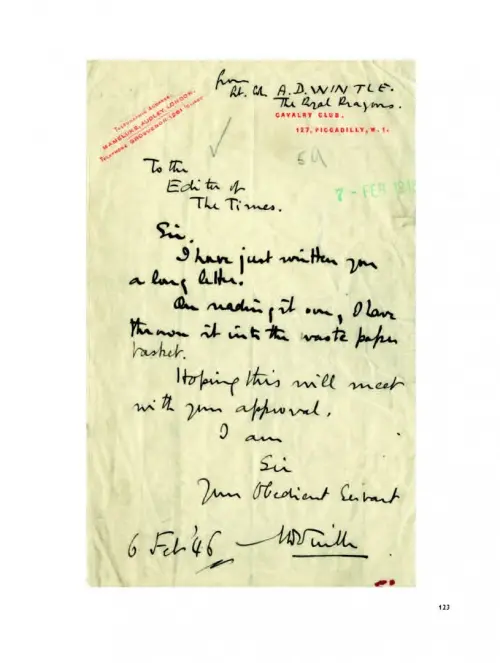 from
Lt. Col. A.D. WINTLE.
The Royal Dragoons.
CAVALRY CLUB.
127, PICCADILLY, W. 1.
TELEGRAPHIC ADDRESS,
MAMELUKE, AUDLEY, LONDON.
TELEPHONE GROSVENOR 1261
59
7 - FEB 1946
To the
Editor of
The Times.
Sir,
I have just written you
a long letter.
On reading it over, I have
thrown it into the waste paper
basket.
Hoping this will meet
with your approval,
I am
Sir
Your Obedient Servant
6 Feb '46 ADWintle
123